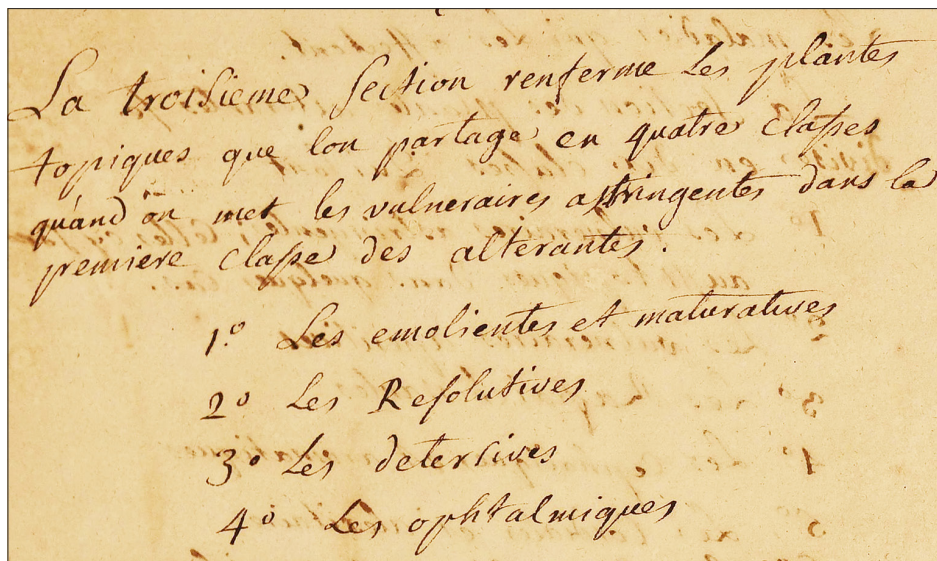 La troisieme Section renferme les plantes
topiques que lon partage en quatre classes
quand on met les vulneraires astringentes dans la
premiere classe des alterantes.
1° Les emolientes et maturatives
2° Les Resolutives
3° Les detersives
4° Les ophtalmiques